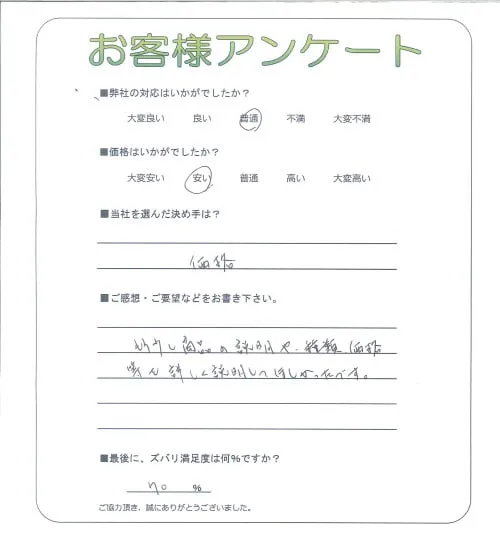 お客様アンケート
■弊社の対応はいかがでしたか？
大変良い 良い 普通 不満 大変不満
■価格はいかがでしたか？
大変安い 安い 普通 高い 大変高い
■当社を選んだ決め手は？
価格
■ご感想・ご要望などをお書き下さい。
もう少し商品の説明や、種類、価格
等を詳しく説明してほしかったです。
■最後に、ズバリ満足度は何%ですか？
70 %
ご協力頂き、誠にありがとうございました。